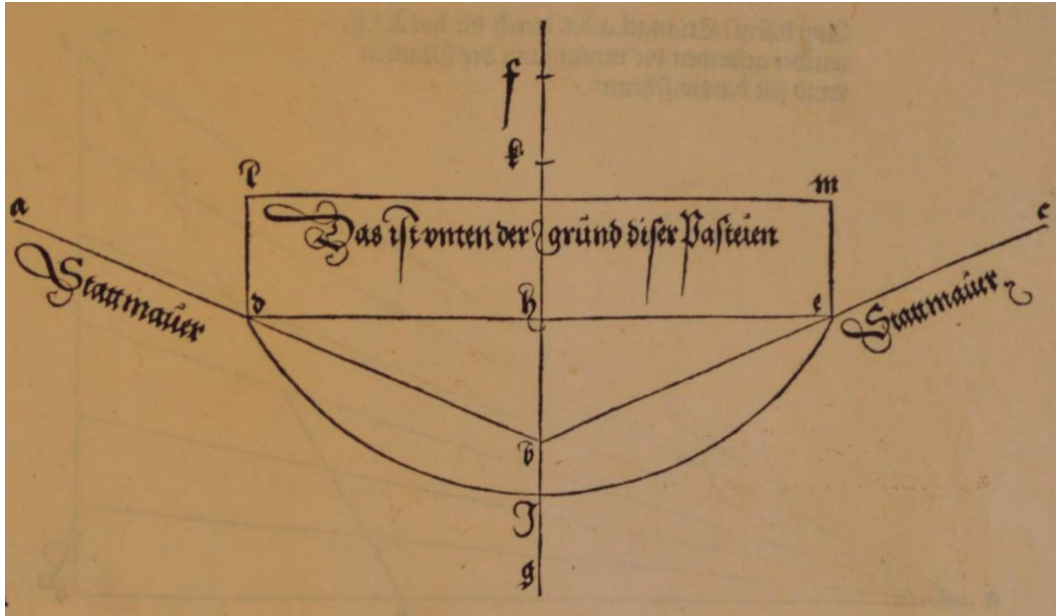 f
k
l m
a c
Das ist vnten der grund diser Pasteien
Stattmauer
Stattmauer
d h e
b
J
g